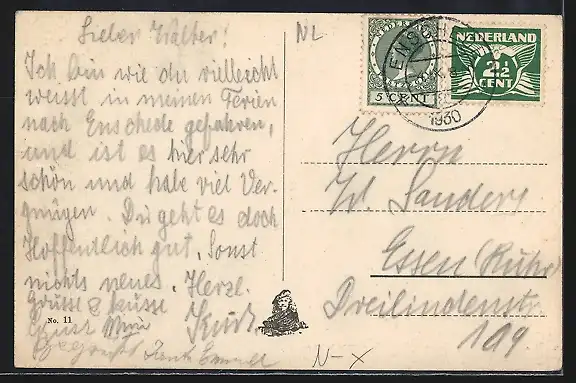 Lieber Walter!
Ich bin wie du vielleicht
weisst in meinen Ferien
nach Enschede gefahren,
und ist es hier sehr
schön und habe viel Ver-
gnügen. Dir geht es doch
Hoffentlich gut. Sonst
nichts neues. Herzl.
Grüsse & Küsse
Kurt.
No. 11
NL
5 CENT
ENSCH
1930
NEDERLAND
2½
CENT
Herrn
W. Sanders
Essen (Ruhr)
Dreilindenstr.
109
N-X